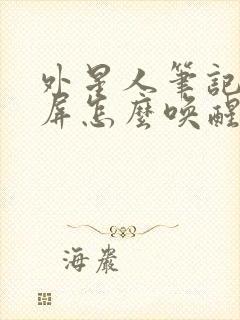 外星人筆記
屏怎麼喚醒
海嚴